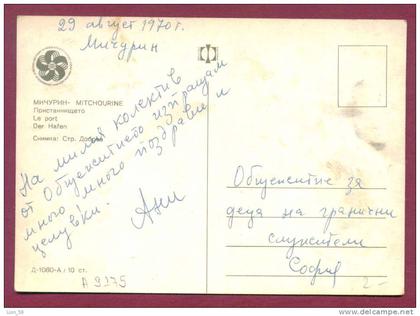 29 август 1970 г.
Мичурин
МИЧУРИН - MITCHOURINE
Пристанището
Le port
Der Hafen
Снимка: Стр. Добрев
На милия колектив
от Общежитието изпращам
много, много поздрави и
целувки.
Ани
Общежитие за
деца на гранични
служители
София
Д-1060-А / 10 ст.
А 9275
2-